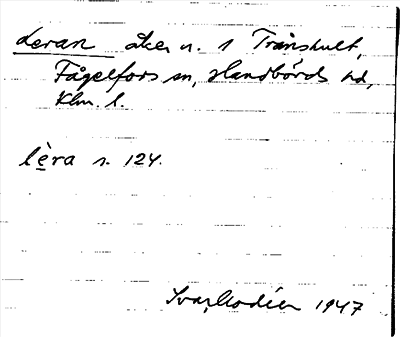 Leran åker n. 1 Trånshult,
Fågelfors sn, Handbörds hd,
Klm. l.
lèra s. 124.
Ivar Modéer 1947